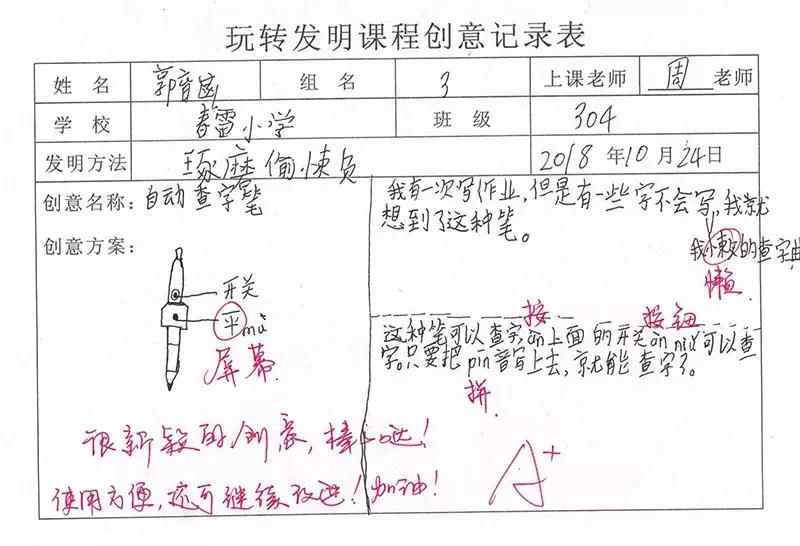 玩转发明课程创意记录表
姓 名 郭音 组 名 3 上课老师 周 老师
学 校 春雷小学 班 级 304
发明方法 琢磨偷懒 2018 年 10 月 24 日
创意名称：自动查字笔
创意方案：
开关
平mù
屏幕
我有一次写作业，但是有一些字不会写，我就
我懒的查字典
懒
想到了这种笔。
按 按钮
这种笔可以查字，àn上面的开关àn niǔ可以查
字。只要把pin音写上去，就能查字了。
拼
很新颖的创意，棒哒！
使用方便，还可继续改进！加油！
A+